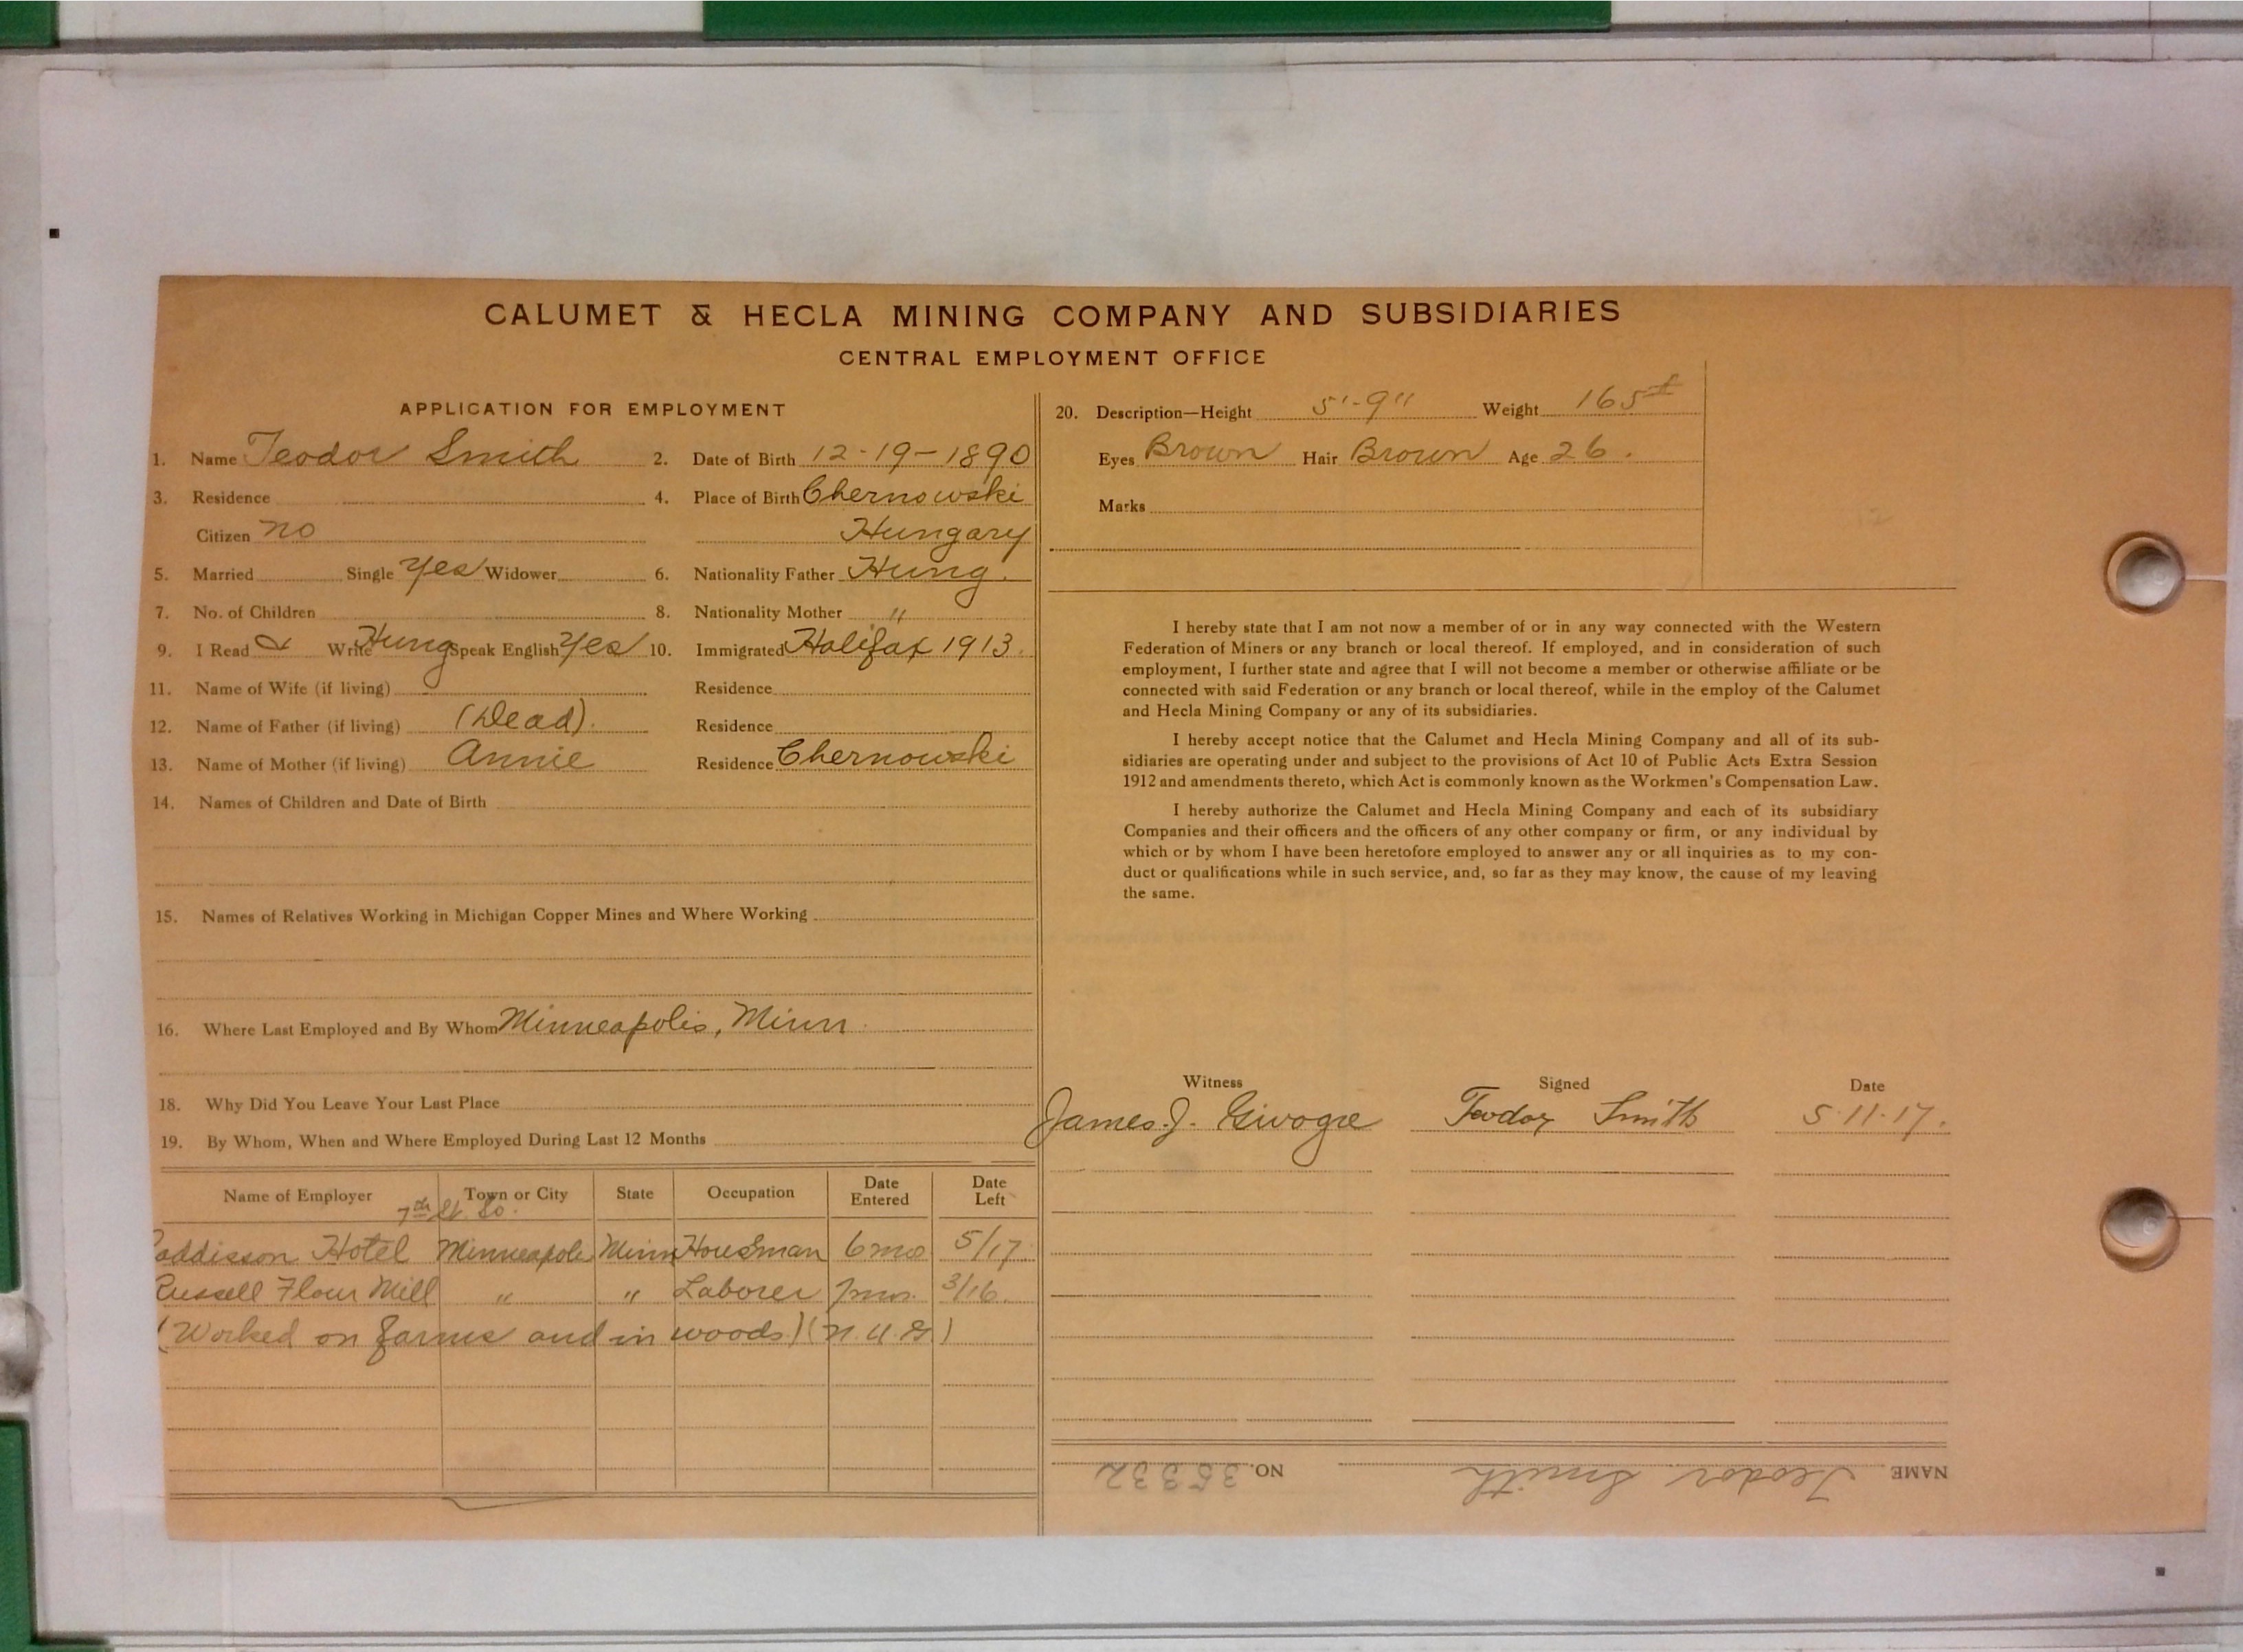 CALUMET & HECLA MINING COMPANY AND SUBSIDIARIES
CENTRAL EMPLOYMENT OFFICE
APPLICATION FOR EMPLOYMENT
1. Name Teodor Smith 2. Date of Birth 12-19-1890
3. Residence 4. Place of Birth Chernowski
Citizen no Hungary
5. Married Single Yes Widower 6. Nationality Father Hung.
7. No. of Children 8. Nationality Mother "
9. I Read & Write Hung Speak English Yes 10. Immigrated Halifax 1913.
11. Name of Wife (if living) Residence
12. Name of Father (if living) (Dead). Residence
13. Name of Mother (if living) Annie Residence Chernowski
14. Names of Children and Date of Birth
15. Names of Relatives Working in Michigan Copper Mines and Where Working
16. Where Last Employed and By Whom Minneapolis, Minn.
18. Why Did You Leave Your Last Place
19. By Whom, When and Where Employed During Last 12 Months
Name of Employer Town or City State Occupation Date Entered Date Left
7th St. So.
addisson Hotel Minneapolis Minn Housman 6 mo 5/17
Russell Flour Mill " " Laborer 7 mos. 3/16.
(Worked on farms and in woods)
20. Description—Height 5'-9" Weight 165#
Eyes Brown Hair Brown Age 26.
Marks
I hereby state that I am not now a member of or in any way connected with the Western
Federation of Miners or any branch or local thereof. If employed, and in consideration of such
employment, I further state and agree that I will not become a member or otherwise affiliate or be
connected with said Federation or any branch or local thereof, while in the employ of the Calumet
and Hecla Mining Company or any of its subsidiaries.
I hereby accept notice that the Calumet and Hecla Mining Company and all of its sub-
sidiaries are operating under and subject to the provisions of Act 10 of Public Acts Extra Session
1912 and amendments thereto, which Act is commonly known as the Workmen's Compensation Law.
I hereby authorize the Calumet and Hecla Mining Company and each of its subsidiary
Companies and their officers and the officers of any other company or firm, or any individual by
which or by whom I have been heretofore employed to answer any or all inquiries as to my con-
duct or qualifications while in such service, and, so far as they may know, the cause of my leaving
the same.
Witness Signed Date
James J. Teodor Smith 5-11-17.
NAME Teodor Smith NO. 35332